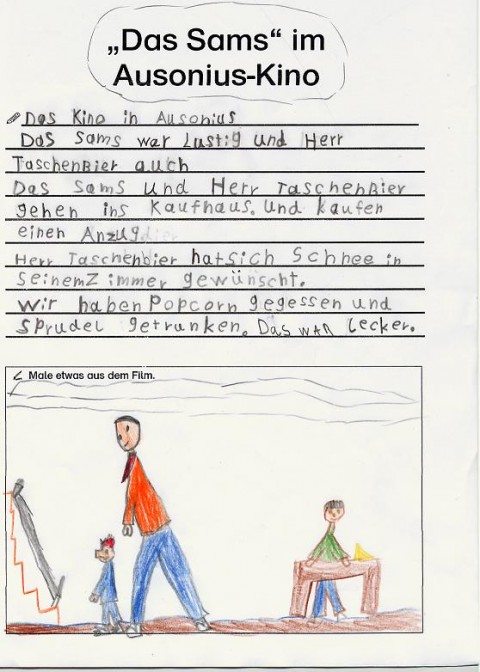 „Das Sams“ im
Ausonius-Kino
Das Kino in Ausonius
Das Sams war Lustig und Herr
TaschenBier auch
Das Sams und Herr TaschenBier
gehen ins Kaufhaus. Und kaufen
einen Anzug
Herr Taschenbier hat sich Schnee in
seinem Zimmer gewünscht.
Wir haben Popcorn gegessen und
Sprudel getrunken. Das war lecker.
Male etwas aus dem Film.